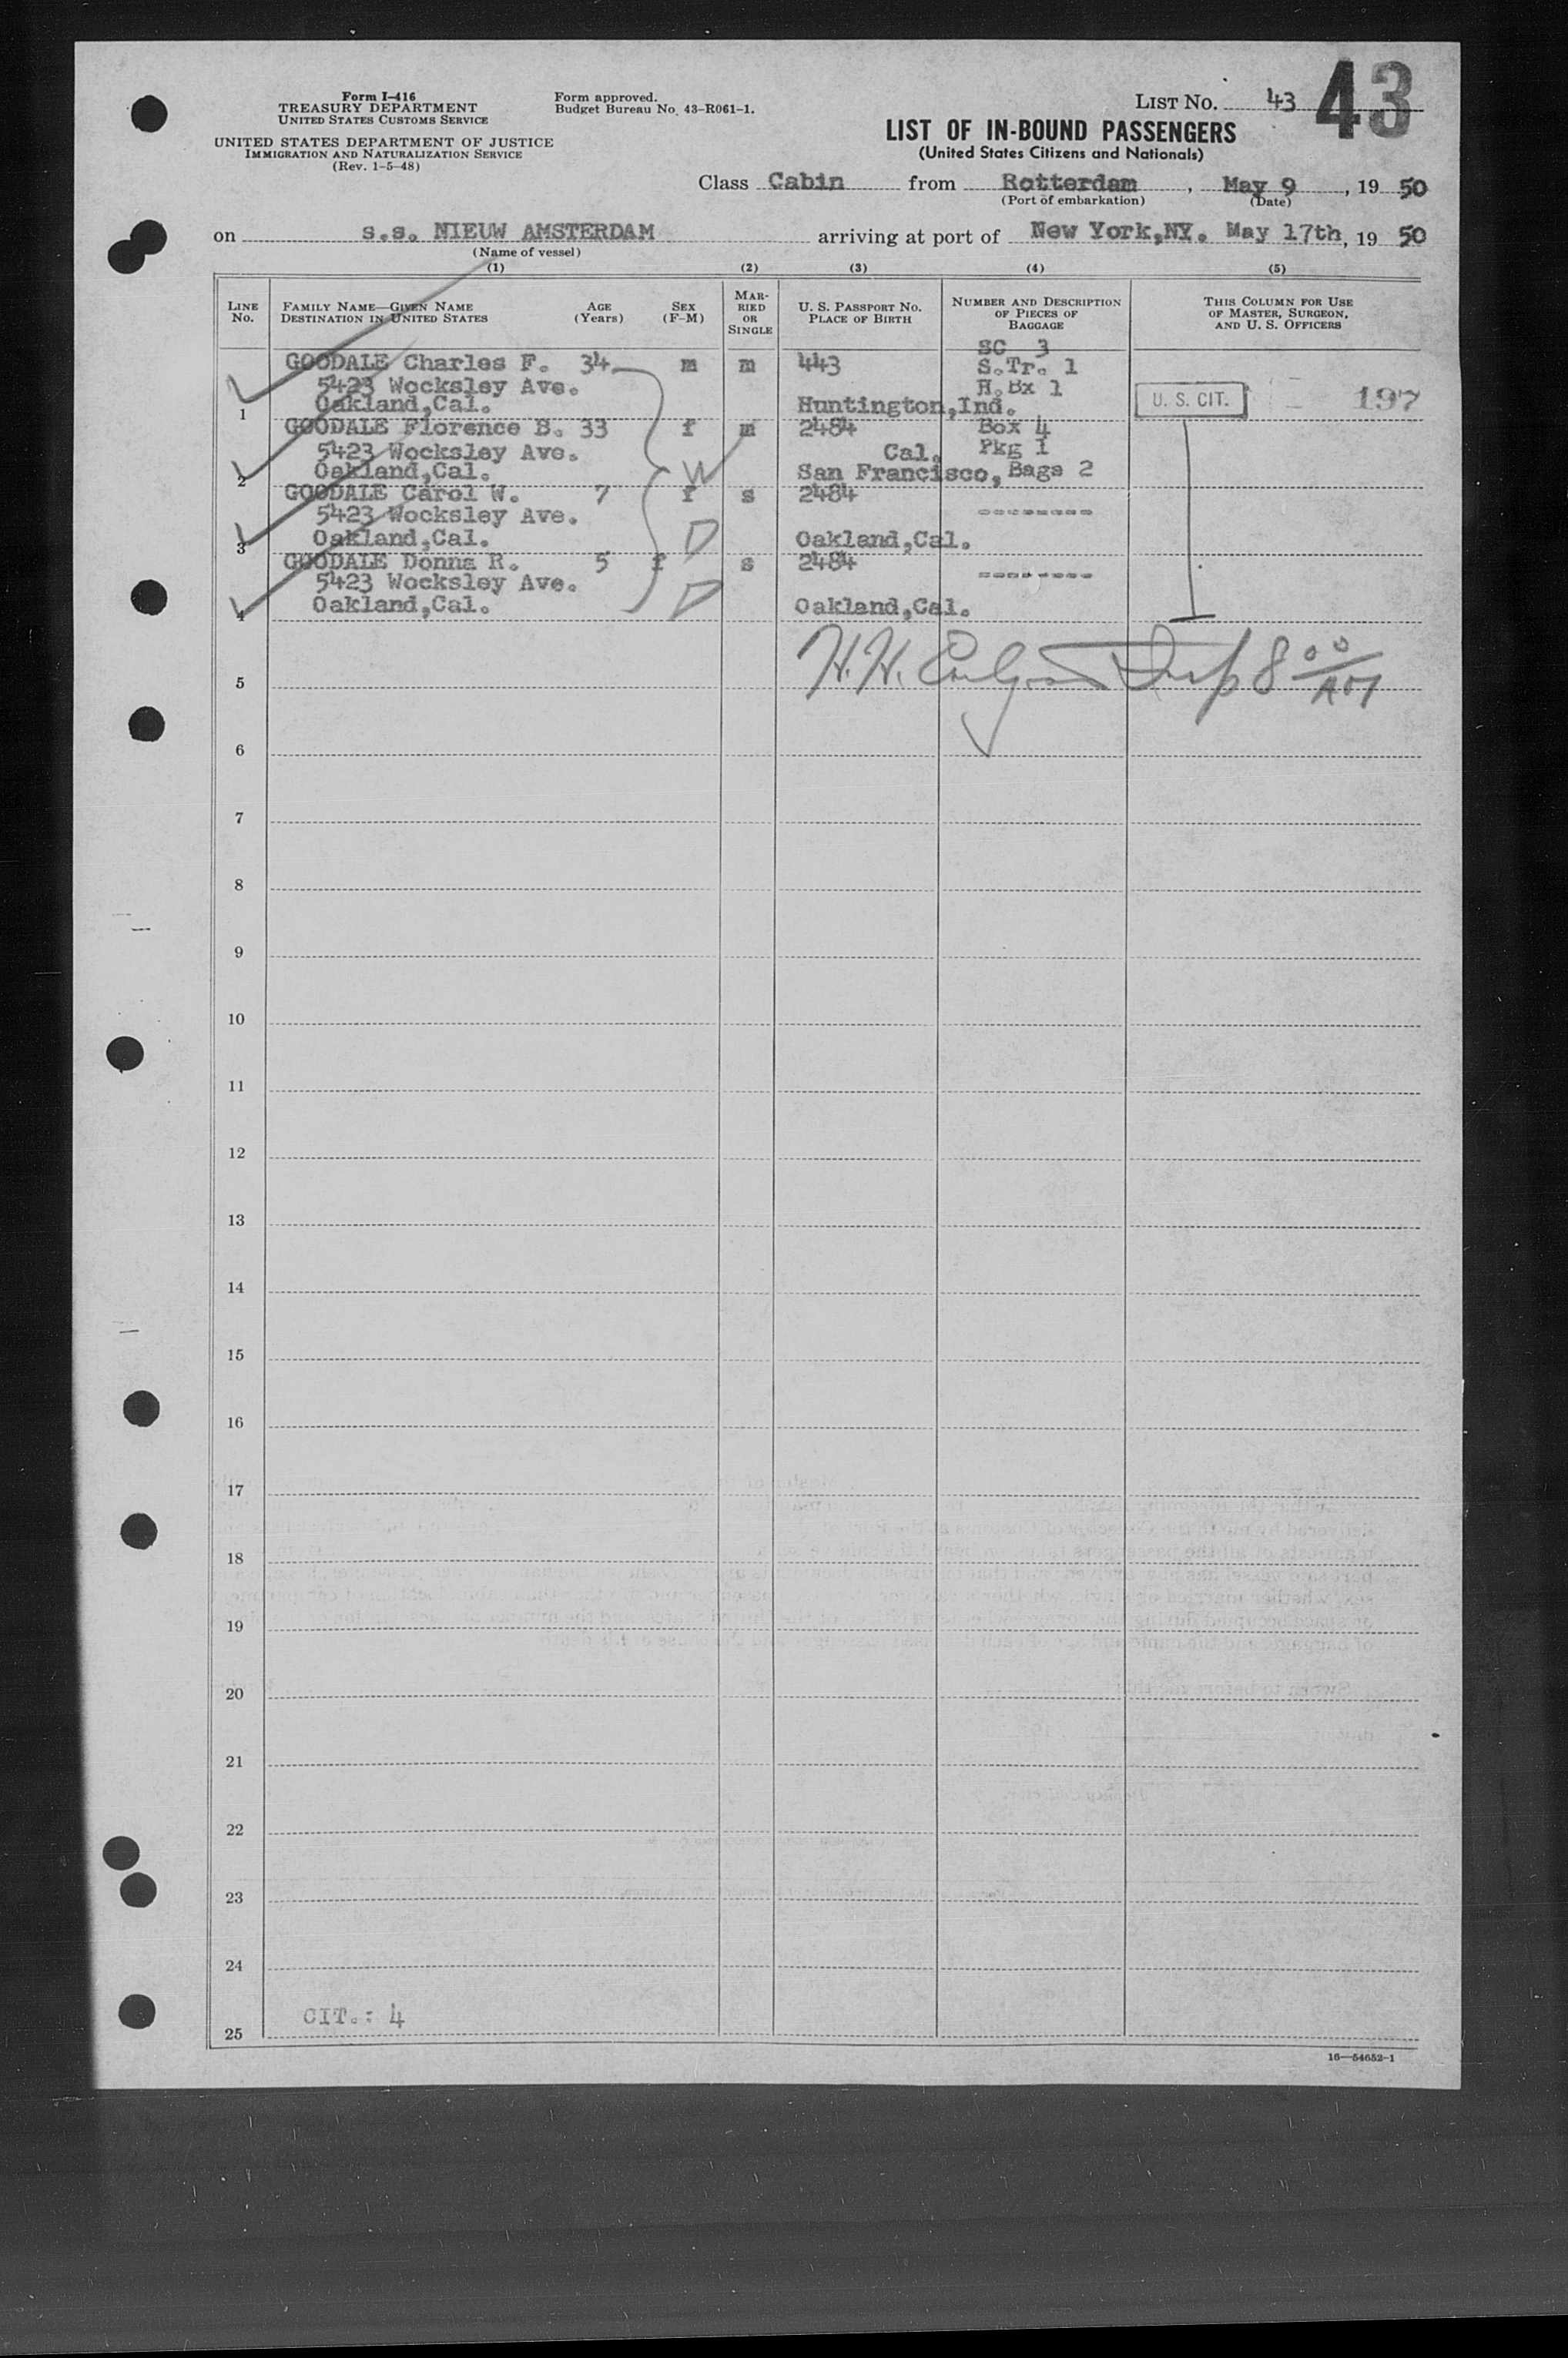 Form I-416
TREASURY DEPARTMENT
UNITED STATES CUSTOMS SERVICE
UNITED STATES DEPARTMENT OF JUSTICE
IMMIGRATION AND NATURALIZATION SERVICE
(Rev. 1-5-48)
Form approved.
Budget Bureau No. 43-R061-1.
LIST NO. 43 43
LIST OF IN-BOUND PASSENGERS
(United States Citizens and Nationals)
Class Cabin from Rotterdam, May 9, 19 50
(Port of embarkation) (Date)
on s.s. NIEUW AMSTERDAM arriving at port of New York,NY. May 17th, 19 50
(Name of vessel)
(1) (2) (3) (4) (5)
LINE No.
FAMILY NAME—GIVEN NAME
DESTINATION IN UNITED STATES
AGE (Years)
SEX (F-M)
MARRIED OR SINGLE
U. S. PASSPORT NO.
PLACE OF BIRTH
NUMBER AND DESCRIPTION OF PIECES OF BAGGAGE
THIS COLUMN FOR USE OF MASTER, SURGEON, AND U. S. OFFICERS
SC 3
GOODALE Charles F. 34 m m 443 S.Tr. 1
5423 Wocksley Ave. H.Bx 1
1 Oakland,Cal. Huntington,Ind. U. S. CIT. 197
GOODALE Florence B. 33 f m 2484 Box 4
5423 Wocksley Ave. Cal. Pkg 1
2 Oakland,Cal. W San Francisco, Bags 2
GOODALE Carol W. 7 f s 2484
5423 Wocksley Ave. --------
3 Oakland,Cal. D Oakland,Cal.
GOODALE Donna R. 5 f s 2484
5423 Wocksley Ave. --------
4 Oakland,Cal. D Oakland,Cal.
5 H.H. Insp 8 00/AM
6
7
8
9
10
11
12
13
14
15
16
17
18
19
20
21
22
23
24
CIT.: 4
25
16—54652-1